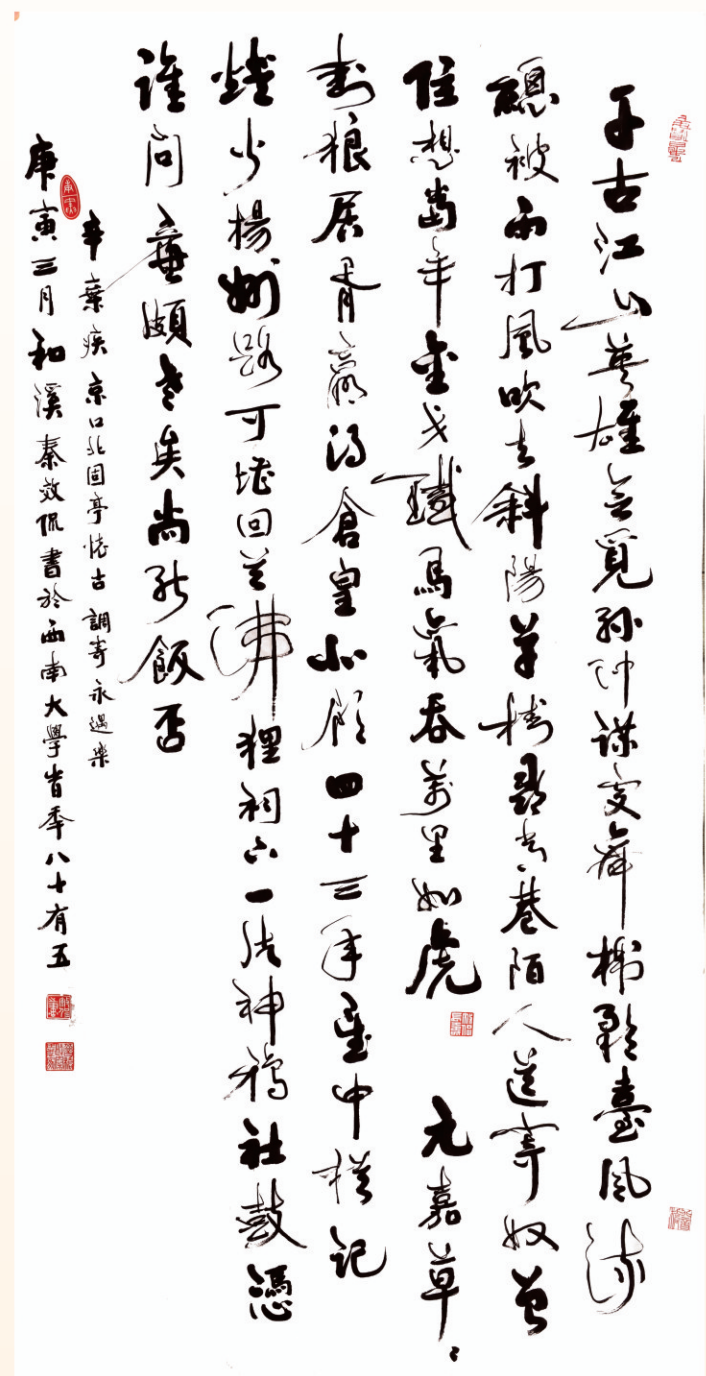 千古江山英雄無覓孫仲謀處舞榭歌臺風流
總被雨打風吹去斜陽草樹尋常巷陌人道寄奴曾
住想當年金戈鐵馬氣吞萬里如虎 元嘉草〻
封狼居胥贏得倉皇北顧四十三年望中猶記
燈火揚州路可堪回首佛狸祠下一片神鴉社鼓憑
誰問廉頗老矣尚能飯否
辛棄疾京口北固亭懷古調寄永遇樂
庚寅三月和溪秦效侃書於西南大學省年八十有五